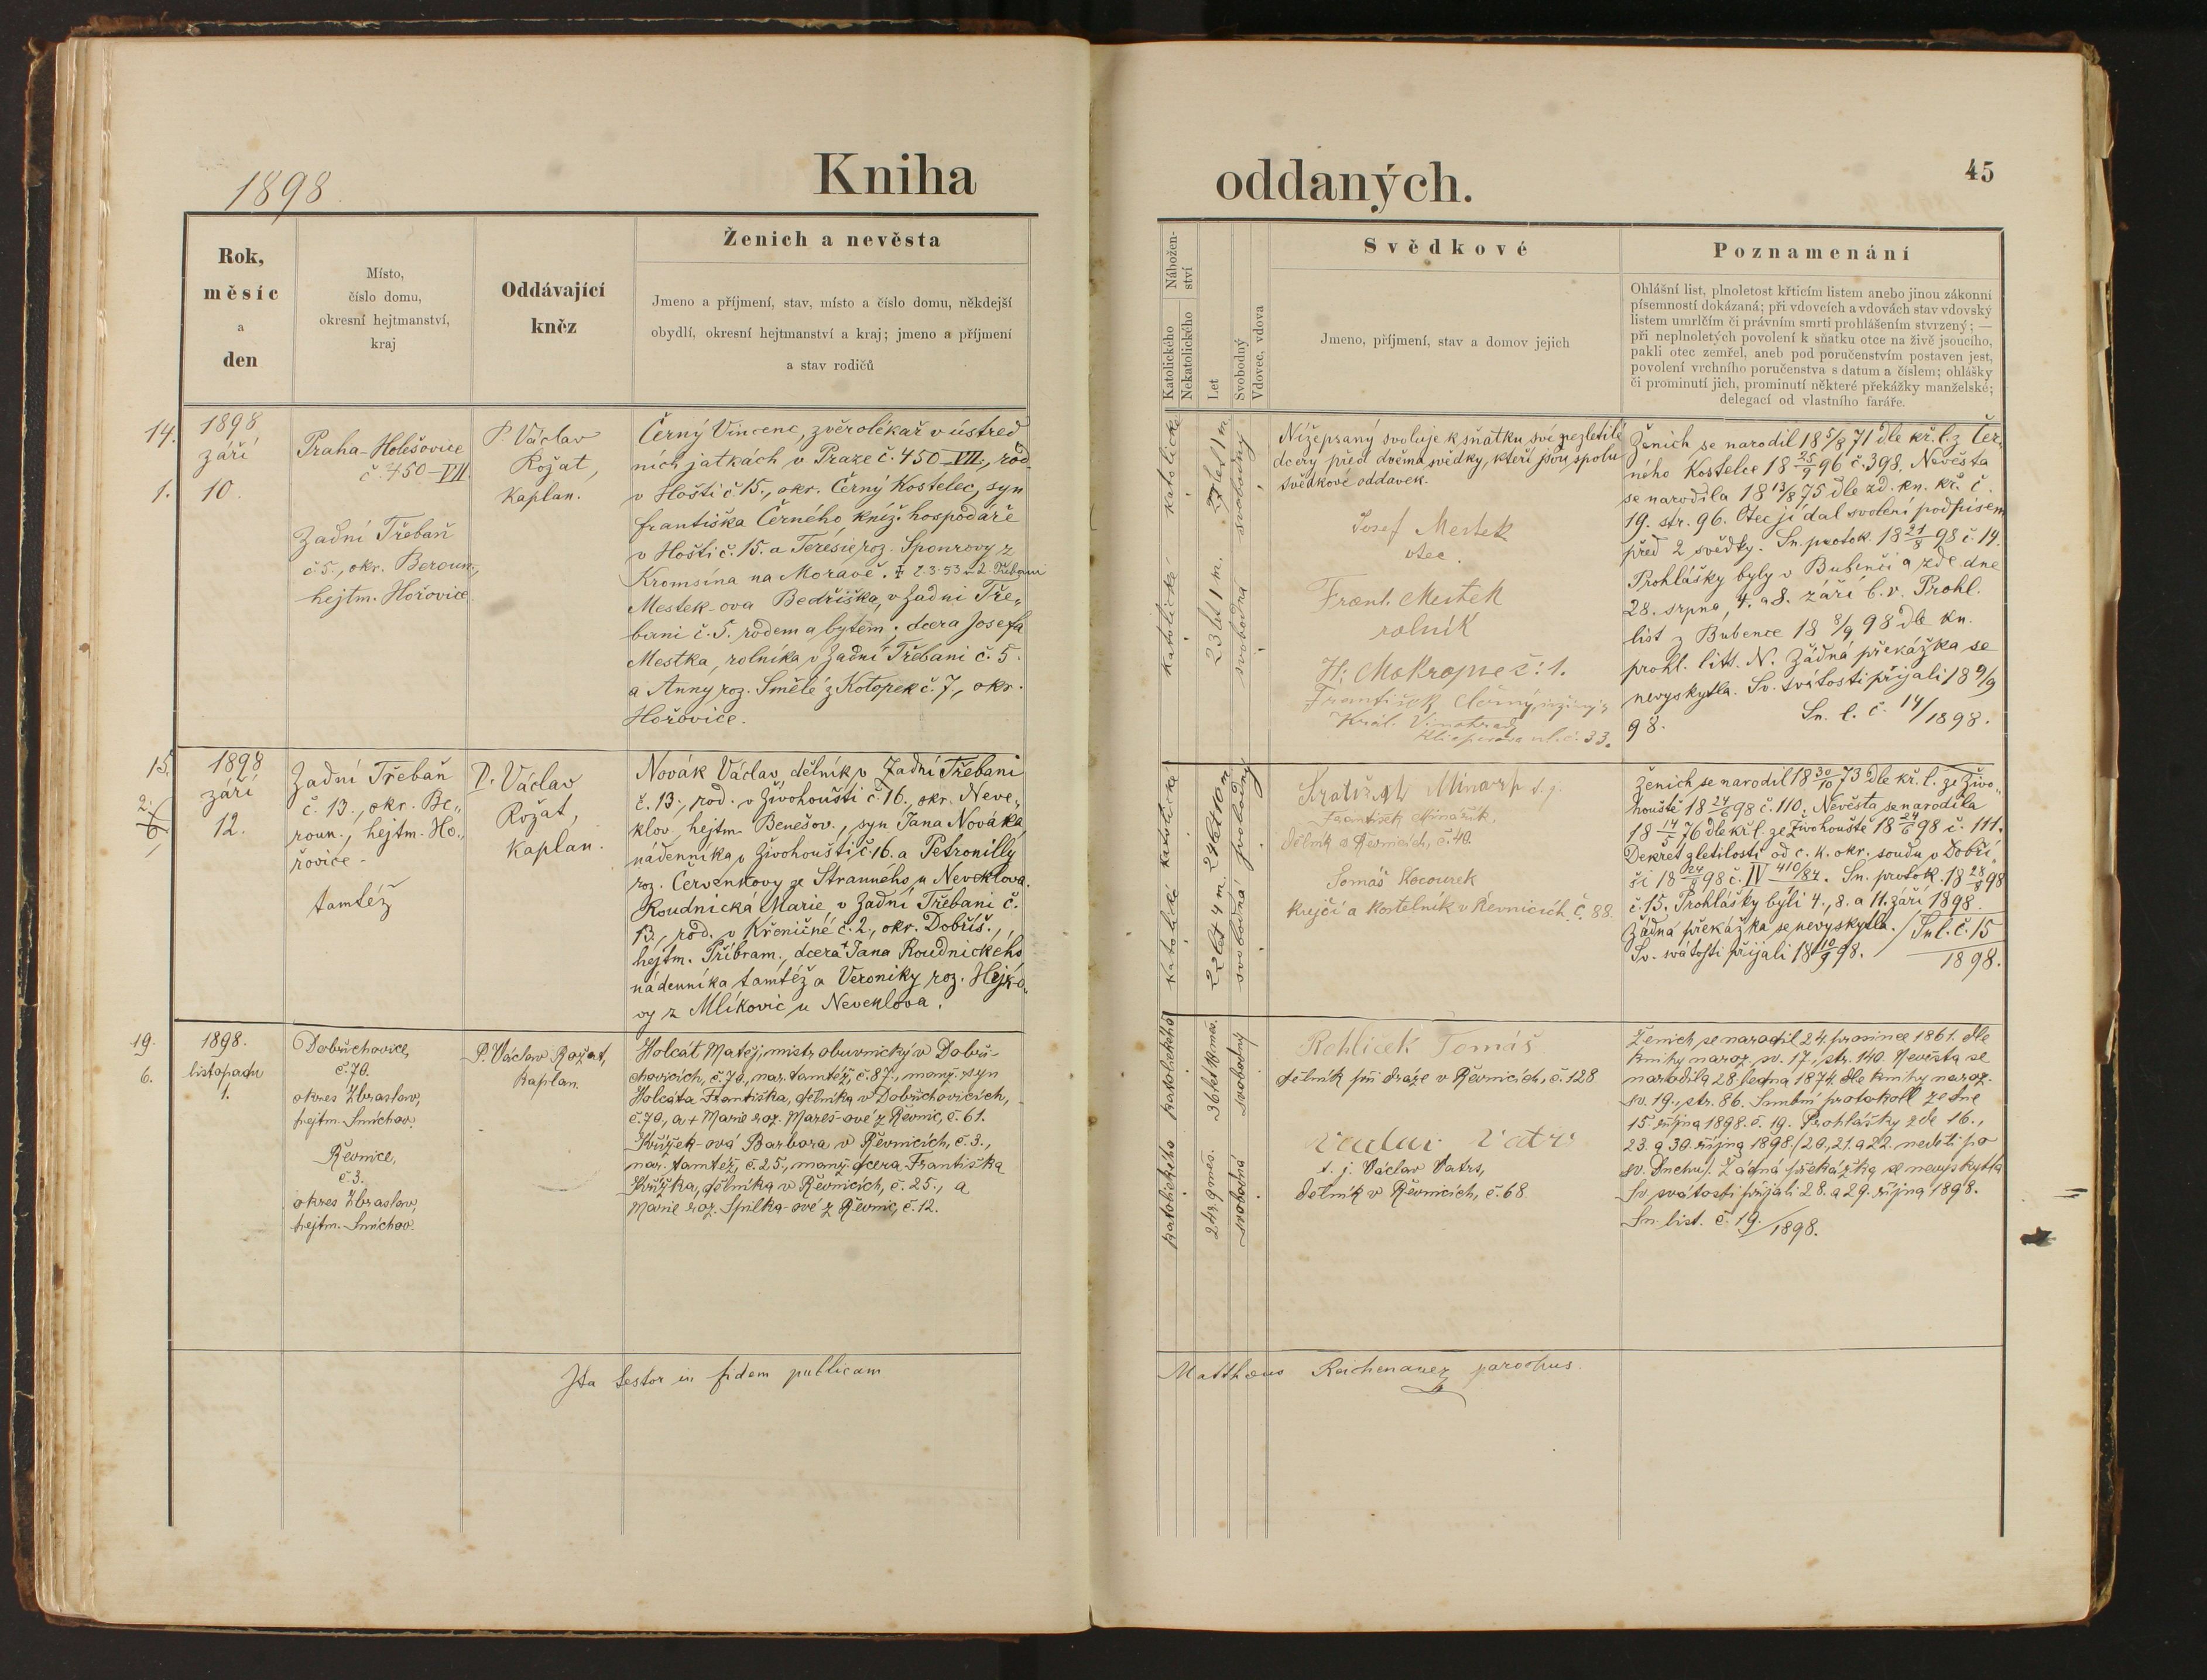 1898
Kniha
oddaných.
45
Rok,
měsíc
a
den
Místo,
číslo domu,
okresní hejtmanství,
kraj
Oddávající
kněz
Ženich a nevěsta
Jmeno a příjmení, stav, místo a číslo domu, někdejší
obydlí, okresní hejtmanství a kraj; jmeno a příjmení
a stav rodičů
Nábožen-
ství
Katolického
Nekatolického
Let
Svobodný
Vdovec, vdova
Svědkové
Jmeno, příjmení, stav a domov jejich
Poznamenání
Ohlášní list, plnoletost křticím listem anebo jinou zákonní
písemností dokázaná; při vdovcích a vdovách stav vdovský
listem umrlčím či právním smrti prohlášením stvrzený; —
při neplnoletých povolení k sňatku otce na živě jsoucího,
pakli otec zemřel, aneb pod poručenstvím postaven jest,
povolení vrchního poručenstva s datum a číslem; ohlášky
či prominutí jich, prominutí některé překážky manželské;
delegací od vlastního faráře.
14.
1.
1898
září
10.
Praha-Holešovice
č. 450-VII.
Zadní Třebaň
č. 5., okr. Beroun.,
hejtm. Hořovice
P. Václav
Rožat,
kaplan.
Černý Vincenc, zvěrolékař v ústřed
ních jatkách v Praze č. 450-VII., rod.
v Hošti č. 15., okr. Černý Kostelec, syn
Františka Černého, kníž. hospodáře
v Hošti č. 15. a Teresie roz. Sponrovy z
Kromsína na Moravě. † 2.3.53 v Z. Třebani
Mestek-ova Bedřiška, v Zadní Tře„
bani č. 5. rodem a bytem; dcera Josefa
Mestka, rolníka v Zadní Třebani č. 5.
a Anny roz. Smělé z Kotopek č. 7., okr.
Hořovice.
katolické
27 let 1 m.
svobodný
katolické
23 let 1 m.
svobodná
Nížepsaný svoluje k sňatku své nezletilé
dcery před dvěma svědky, kteří jsou spolu
svědkové oddavek.
Josef Mestek
otec
Frant. Mestek
rolník
H: Mokropse č: 1.
František Černý,
Král. Vinohrady
č. 33.
Ženich se narodil 18 5/8 71 dle kř. l. z Čer„
ného Kostelce 18 25/9 96 č. 398. Nevěsta
se narodila 18 13/8 75 dle zd. kn. kř. č.
19. str. 96. Otec jí dal svolení podpisem
před 2 svědky. Sn. protok. 18 21/8 98 č. 14.
Prohlášky byly v Bubenči a zde dne
28. srpna, 4. a 8. září b. r. Prohl.
list z Bubenče 18 8/9 98 dle kn.
prohl. litt. N. Žádná překážka se
nevyskytla. Sv. svátosti přijali 18 9/9
98. Sn. l. č. 14/1898.
15.
2.
1898
září
12.
Zadní Třebaň
č. 13., okr. Be„
roun., hejtm. Ho„
řovice.
tamtéž
P. Václav
Rožat,
kaplan.
Novák Václav, dělník v Zadní Třebani
č. 13., rod. v Živohoušti č. 16., okr. Neve„
klov, hejtm. Benešov., syn Jana Nováka,
nádenníka v Živohoušti č. 16. a Petronilly
roz. Červenkovy ze Stranného u Neveklova.
Roudnická Marie v Zadní Třebani č.
13., rod. v Křeničné č. 2., okr. Dobříš.,
hejtm. Příbram., dcera † Jana Roudnického,
nádenníka tamtéž a Veroniky roz. Hejko„
vy z Mlíkovic u Neveklova.
katolické
24 let 10 m
svobodný
katolické
22 let 4 m.
svobodná
František Minařík
dělník v Řevnicích, č. 40.
Tomáš Kocourek
krejčí a kostelník v Řevnicích č. 88.
Ženich se narodil 18 30/10 73 dle kř. l. ze Živo„
houště 18 24/6 98 č. 110. Nevěsta se narodila
18 14/5 76 dle kř. l. ze Živohouště 18 24/6 98 č. 111.
Dekret zletilosti od c. k. okr. soudu v Dobří„
ši 18 24/8 98 č. IV 410/84. Sn. protok. 18 28/8 98
č. 15. Prohlášky byli 4., 8. a 11. září 1898.
Žádná překážka se nevyskytla. / Sn. l. č. 15
Sv. svátosti přijali 18 10/9 98. / 1898.
19.
6.
1898.
listopadu
1.
Dobřichovice,
č. 70.
okres Zbraslav,
hejtm. Smíchov.
Řevnice,
č. 3.
okres Zbraslav,
hejtm. Smíchov.
P. Václav Rožat,
kaplan.
Holcát Matěj, mistr obuvnický v Dobři-
chovicích, č. 70., nar. tamtéž, č. 87., manž. syn
Holcáta Františka, dělníka v Dobřichovicích,
č. 70, a † Marie roz. Mareš-ové z Řevnic, č. 61.
Křížek-ová Barbora v Řevnicích, č. 3.,
nar. tamtéž, č. 25., manž. dcera Františka
Křížka, dělníka v Řevnicích, č. 25., a
Marie roz. Spilka-ové z Řevnic, č. 12.
katolického
36 let 10 měs.
svobodný
katolického
24 r. 9 měs.
svobodná
Rohlíček Tomáš
dělník při dráze v Řevnicích, č. 128
t. j. Václav Vatrs,
dělník v Řevnicích, č. 68.
Ženich se narodil 24. prosince 1861. dle
knihy naroz. sv. 17., str. 140. Nevěsta se
narodila 28. ledna 1874. dle knihy naroz.
sv. 19., str. 86. Snubní protokoll ze dne
15. října 1898. č. 19. Prohlášky zde 16.,
23. a 30. října 1898. (20., 21. a 22. neděli po
sv. Duchu). Žádná překážka se nevyskytla
Sv. svátosti přijali 28. a 29. října 1898.
Sn. list. č. 19./1898.
Ita testor in fidem publicam
Matthæus Reichenauer parochus.